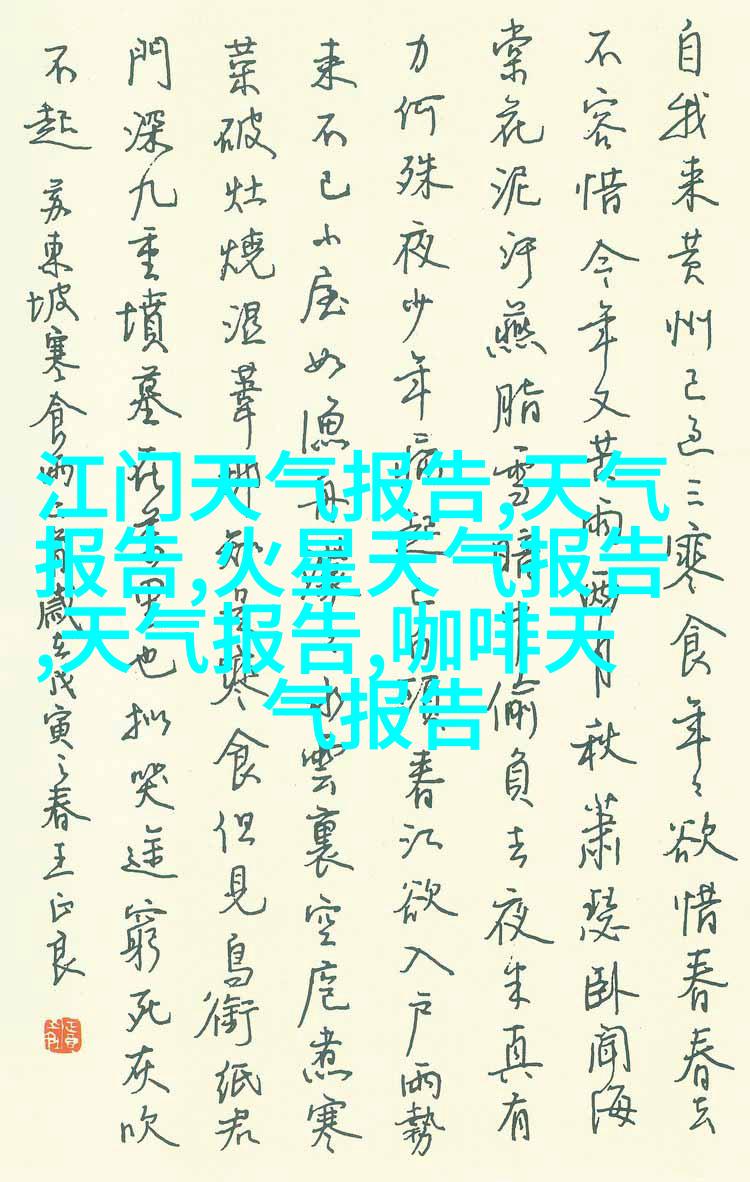 自我来黄州已过三寒食年々欲惜春春去
不容惜今年又苦雨两月秋萧瑟卧闻海
棠花泥汙燕脂雪暗中偷負去夜半真有
力何殊夜少年病起已頭春江欲入户雨勢
来不已小屋如漁舟水雲裏空庖煮寒
菜破灶燒濕葦那知是寒食但見烏銜紙君
門深九重墳墓在万里也拟哭途窮死灰吹
不起 苏東坡寒食雨二首歲在戊寅之春王正良
江门天气报告,天气
报告,火星天气报告
,天气报告,咖啡天
气报告